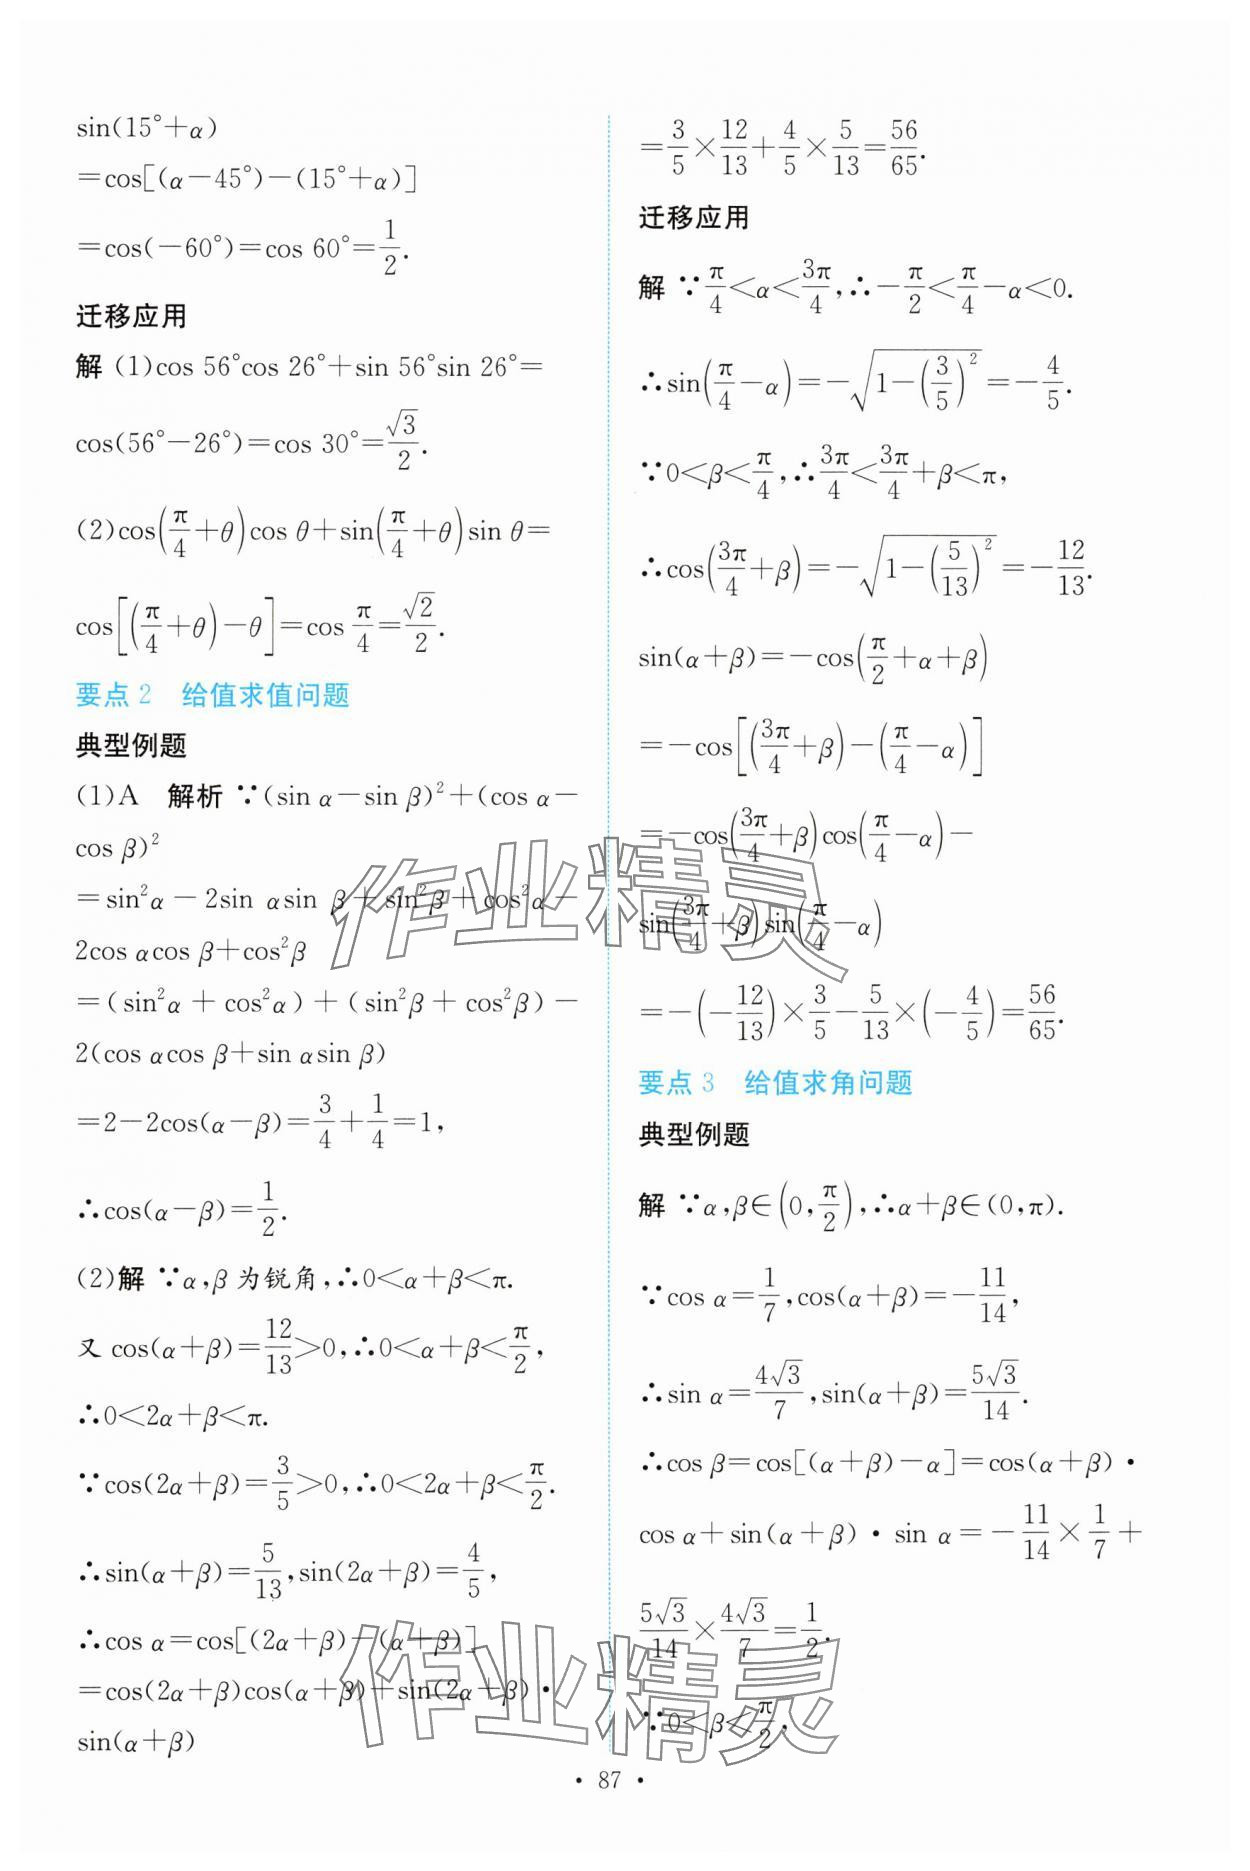 sin(15°+α)
=cos[(α-45°)-(15°+α)]
=cos(-60°)=cos 60°=1/2.
迁移应用
解 (1)cos 56°cos 26°+sin 56°sin 26°=
cos(56°-26°)=cos 30°=√3/2.
(2)cos(π/4+θ)cos θ+sin(π/4+θ)sin θ=
cos[(π/4+θ)-θ]=cos π/4=√2/2.
要点 2 给值求值问题
典型例题
(1)A 解析 ∵(sin α-sin β)²+(cos α-
cos β)²
=sin²α-2sin αsin β+sin²β+cos²α-
2cos αcos β+cos²β
=(sin²α+cos²α)+(sin²β+cos²β)-
2(cos αcos β+sin αsin β)
=2-2cos(α-β)=3/4+1/4=1,
∴cos(α-β)=1/2.
(2)解 ∵α,β为锐角,∴0<α+β<π.
又 cos(α+β)=12/13>0,∴0<α+β<π/2,
∴0<2α+β<π.
∵cos(2α+β)=3/5>0,∴0<2α+β<π/2.
∴sin(α+β)=5/13,sin(2α+β)=4/5,
∴cos α=cos[(2α+β)-(α+β)]
=cos(2α+β)cos(α+β)+sin(2α+β)·
sin(α+β)
=3/5×12/13+4/5×5/13=56/65.
迁移应用
解 ∵π/4<α<3π/4,∴-π/2<π/4-α<0.
∴sin(π/4-α)=-√(1-(3/5)²)=-4/5.
∵0<β<π/4,∴3π/4<3π/4+β<π,
∴cos(3π/4+β)=-√(1-(5/13)²)=-12/13.
sin(α+β)=-cos(π/2+α+β)
=-cos[(3π/4+β)-(π/4-α)]
=-cos(3π/4+β)cos(π/4-α)-
sin(3π/4+β)sin(π/4-α)
=-(-12/13)×3/5-5/13×(-4/5)=56/65.
要点 3 给值求角问题
典型例题
解 ∵α,β∈(0,π/2),∴α+β∈(0,π).
∵cos α=1/7,cos(α+β)=-11/14,
∴sin α=4√3/7,sin(α+β)=5√3/14.
∴cos β=cos[(α+β)-α]=cos(α+β)·
cos α+sin(α+β)·sin α=-11/14×1/7+
5√3/14×4√3/7=1/2.
∵0<β<π/2,
·87·
作业精灵
作业精灵